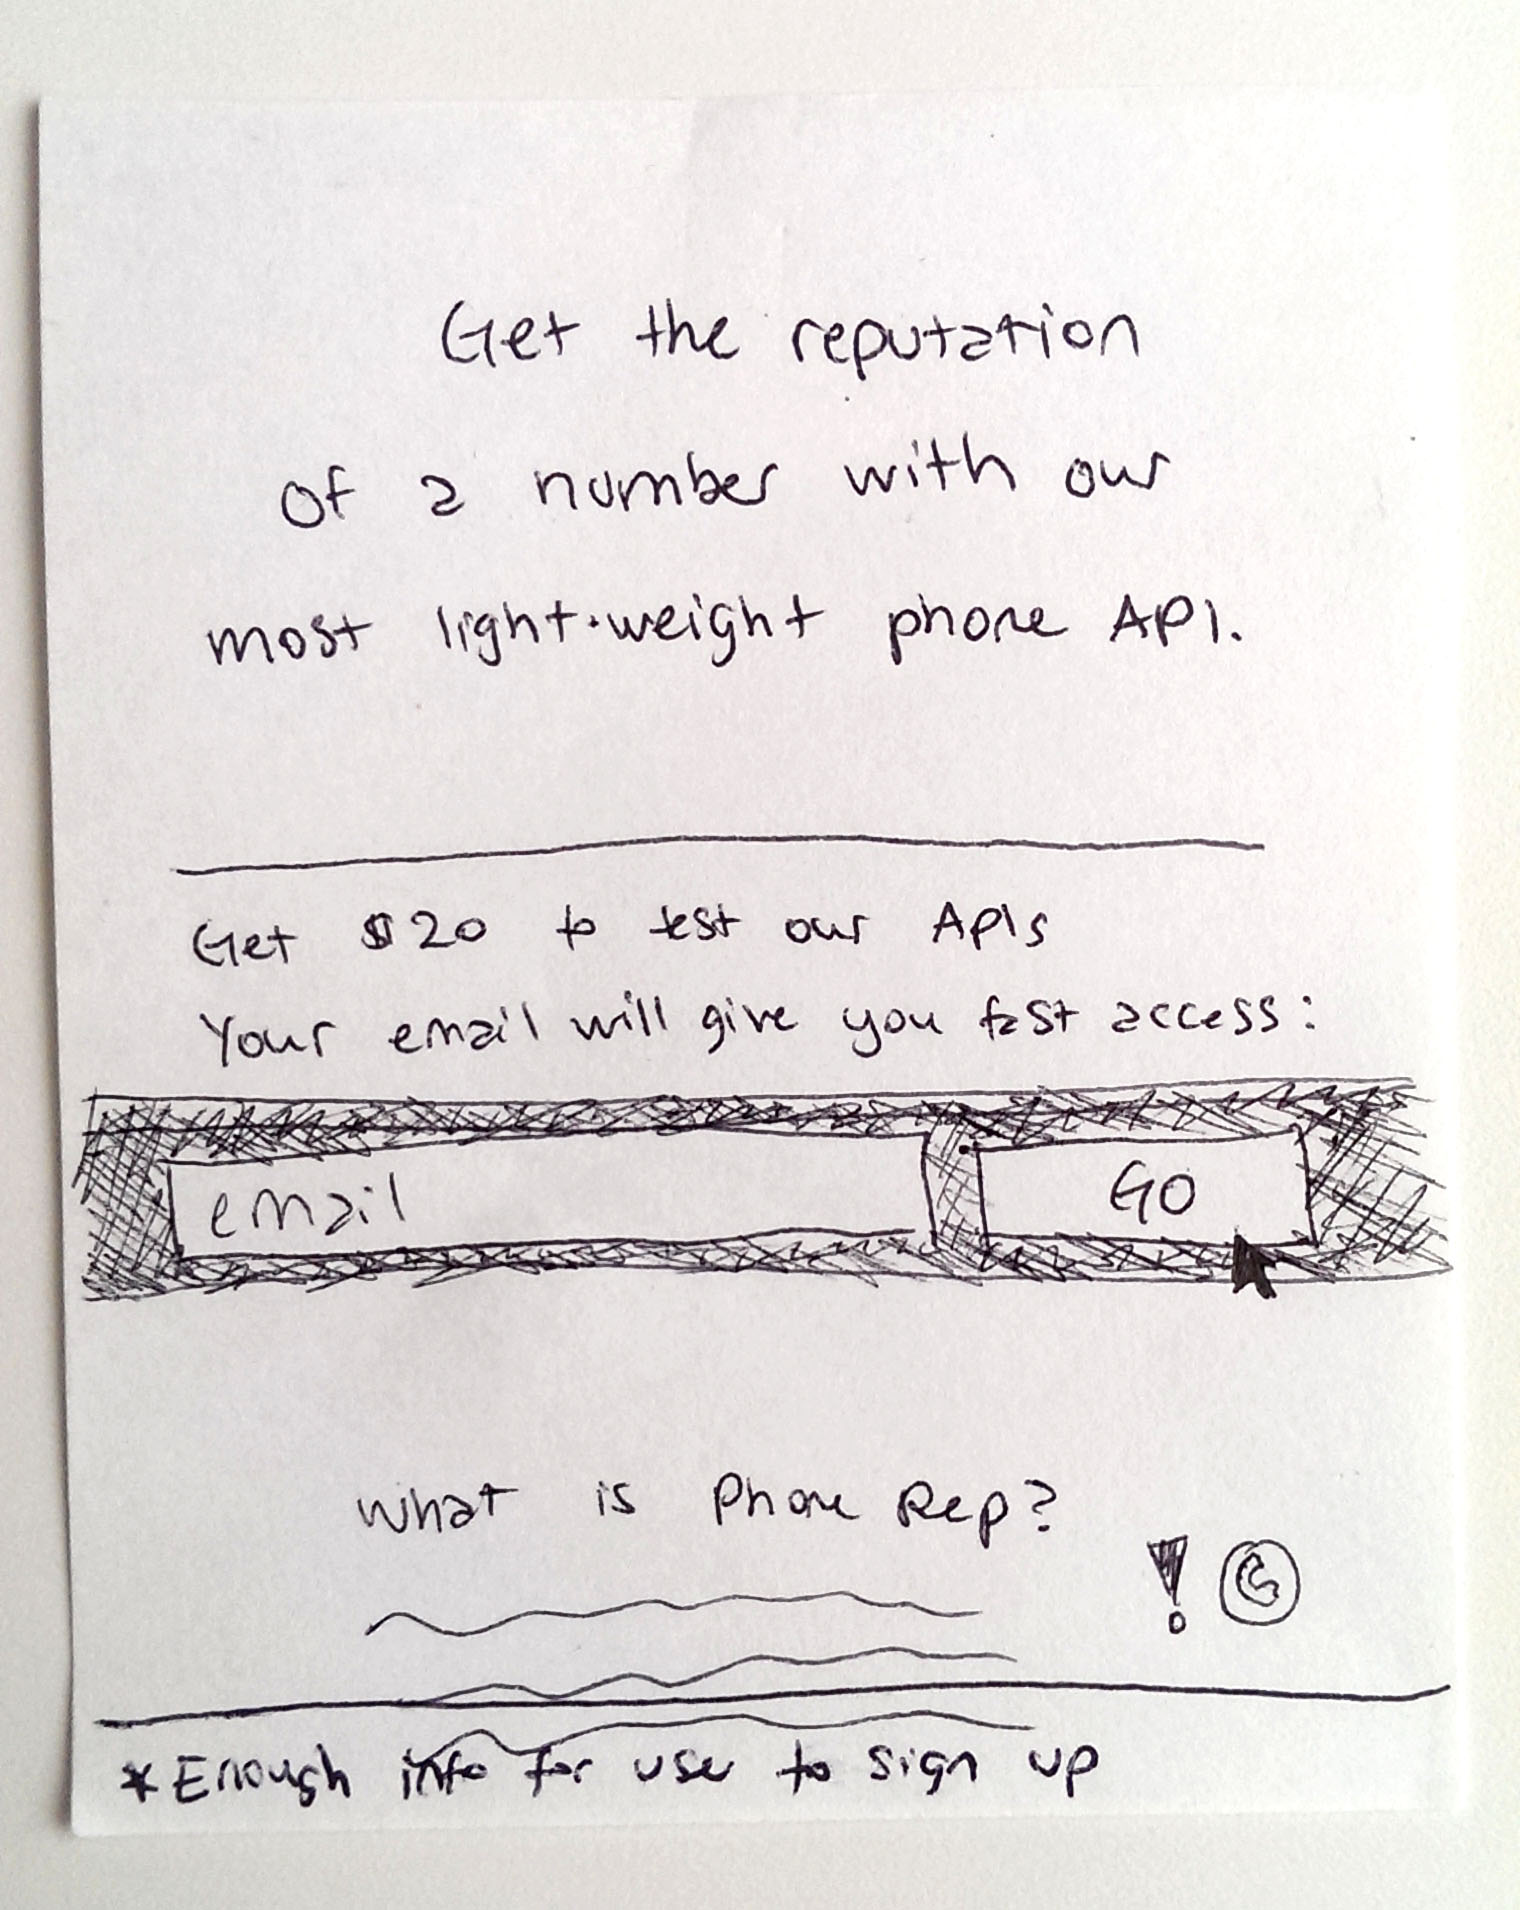 Get the reputation
of a number with our
most light-weight phone API.
Get $20 to test our APIs
Your email will give you fast access:
email
GO
What is Phone Rep?
*Enough info for user to sign up